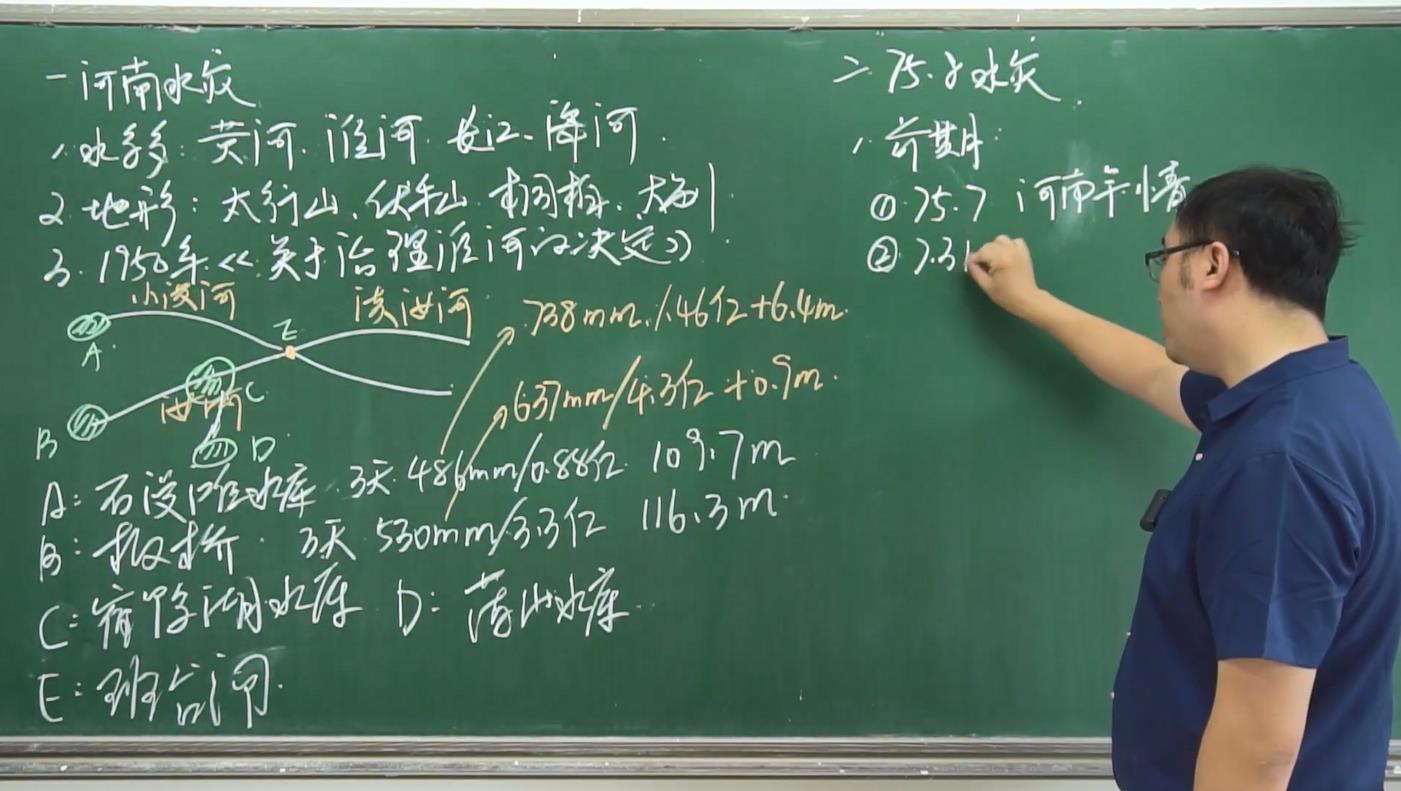 一 河南水灾
1. 水系: 黄河. 淮河. 长江. 海河.
2. 地形: 太行山. 伏牛山. 桐柏. 大别
3. 1950年《关于治理淮河的决定》
小洪河
洪汝河
A
E
C
汝河
B
D
738mm/1.46亿+6.4m.
637mm/4.3亿+0.9m.
A: 石漫滩水库. 3天. 486mm/0.88亿. 109.7m
B: 板桥. 3天 530mm/3.3亿 116.3m.
C: 宿鸭湖水库 D: 薄山水库.
E: 班台闸.
二. 75.8水灾.
1. 前期:
① 75.7 河南午
② 7.31